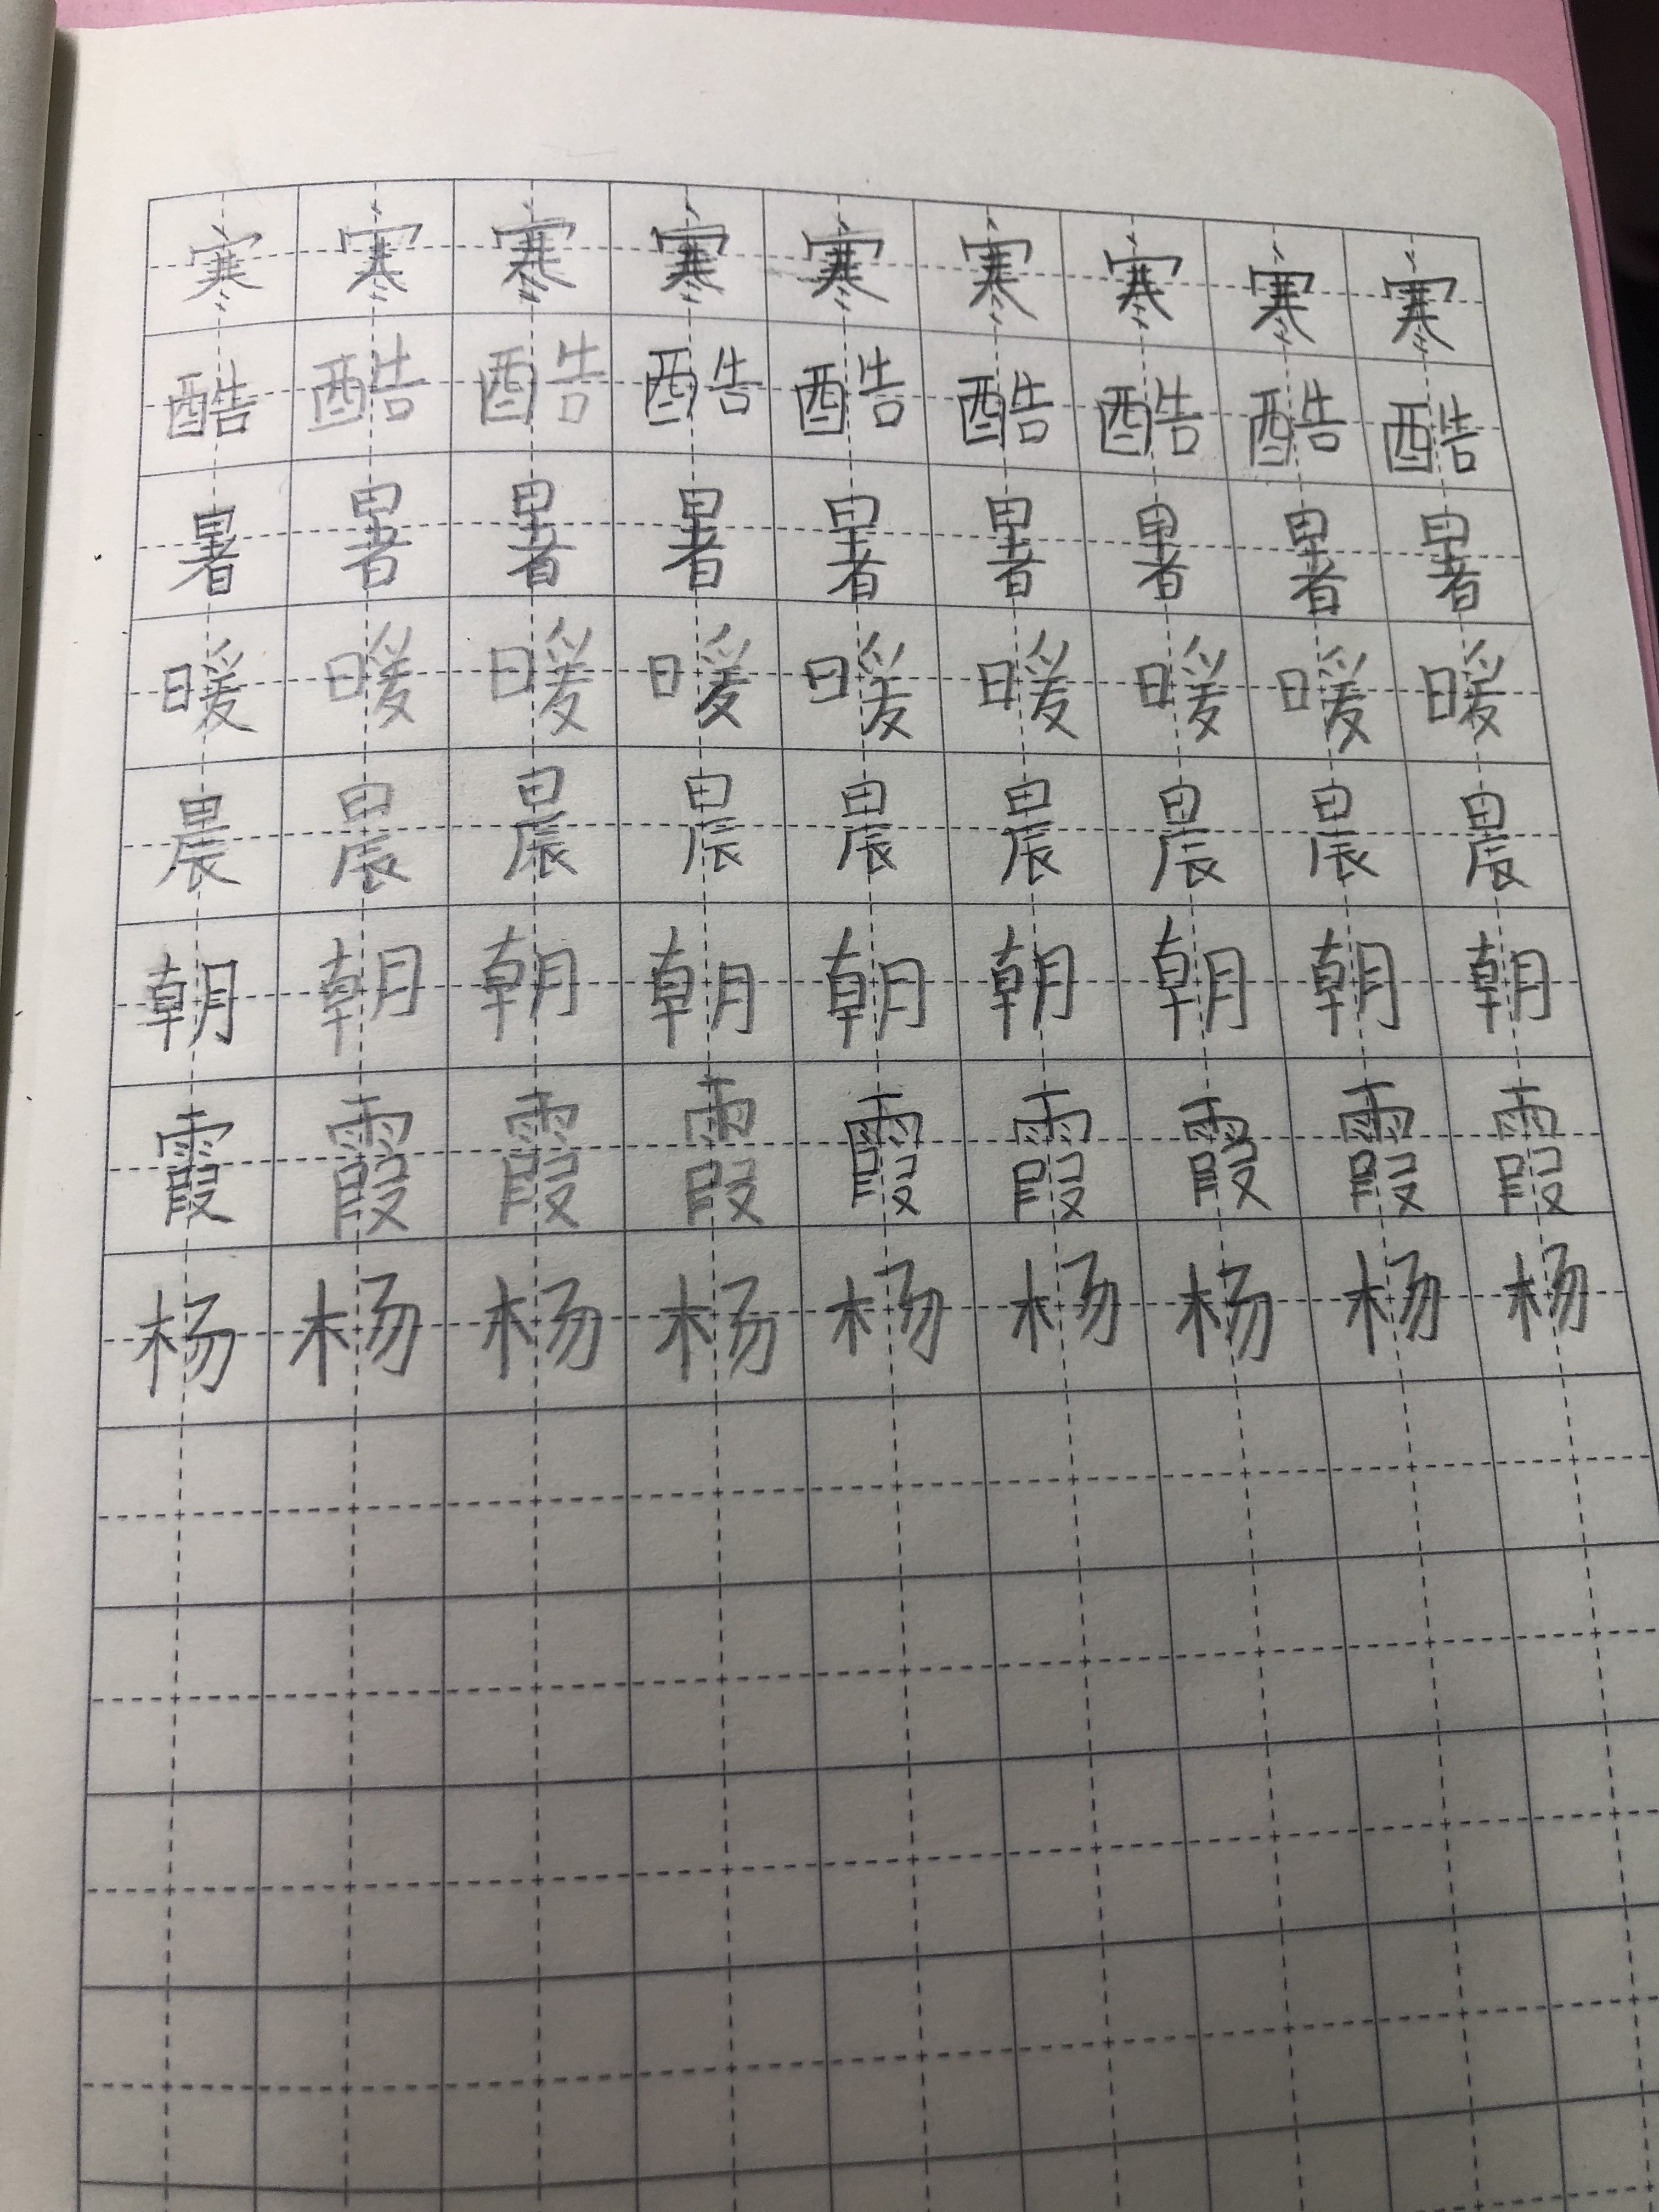 寒寒寒寒寒寒寒寒寒
酷酷酷酷酷酷酷酷酷
暑暑暑暑暑暑暑暑暑
暖暖暖暖暖暖暖暖暖
晨晨晨晨晨晨晨晨晨
朝朝朝朝朝朝朝朝朝
霞霞霞霞霞霞霞霞霞
杨杨杨杨杨杨杨杨杨